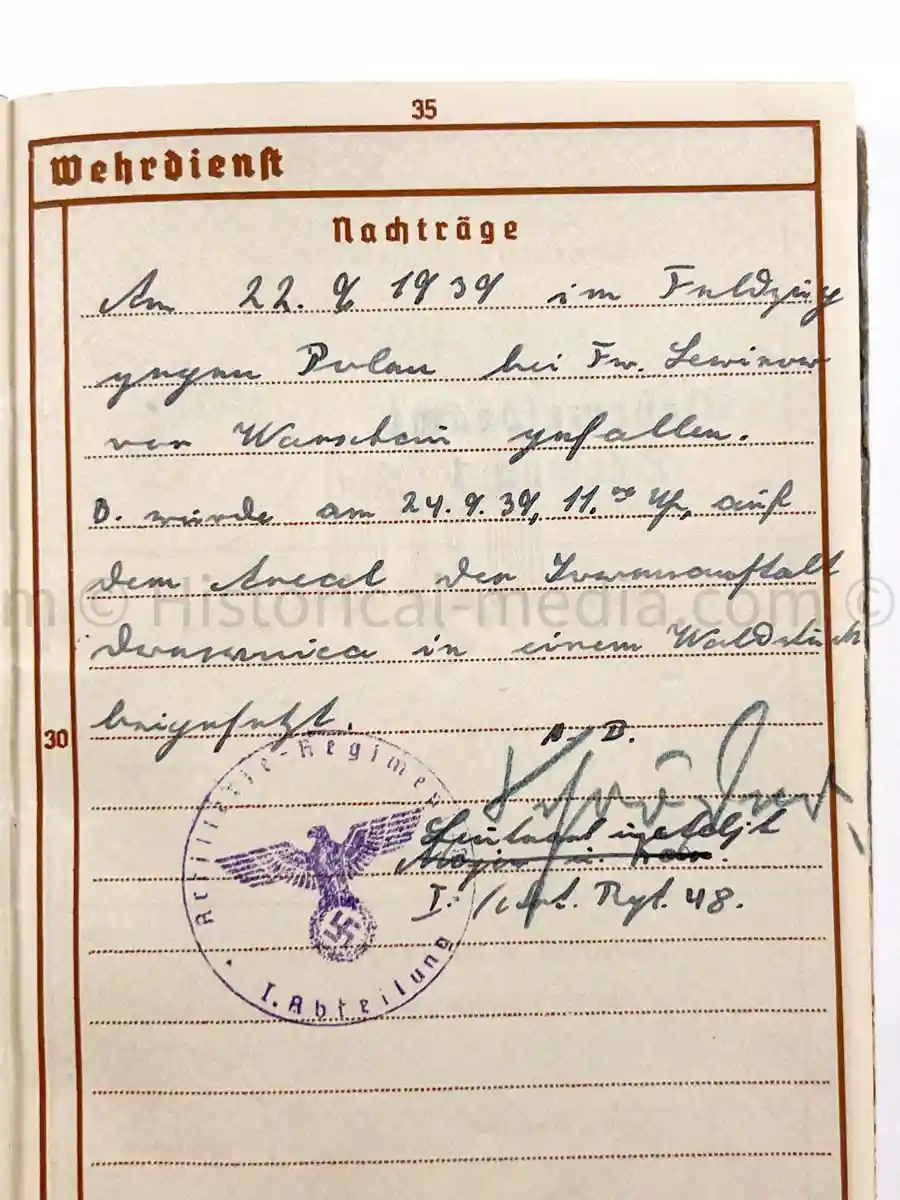 35
Wehrdienst
Nachträge
Am 22. 9 1939 im Feldzug
gegen Polen bei Fw. Lewinow
vor Warschau gefallen.
B. wurde am 24.9.39, 11.00 Uhr, auf
dem Areal der Irrenanstalt
Drewnica in einem Waldstück
beigesetzt.
30
A. B.
Leutnant
Major u.
I. /Art. Rgt. 48.
Artillerie-Regiment
I. Abteilung
© Historical-media.com ©